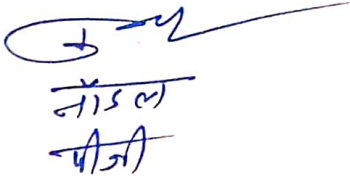 नॉडल
पीजी